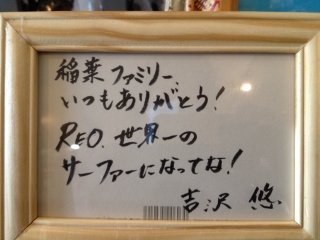 稲葉ファミリー、
いつもありがとう!
REO. 世界一の
サーファーになってな!
吉沢 悠